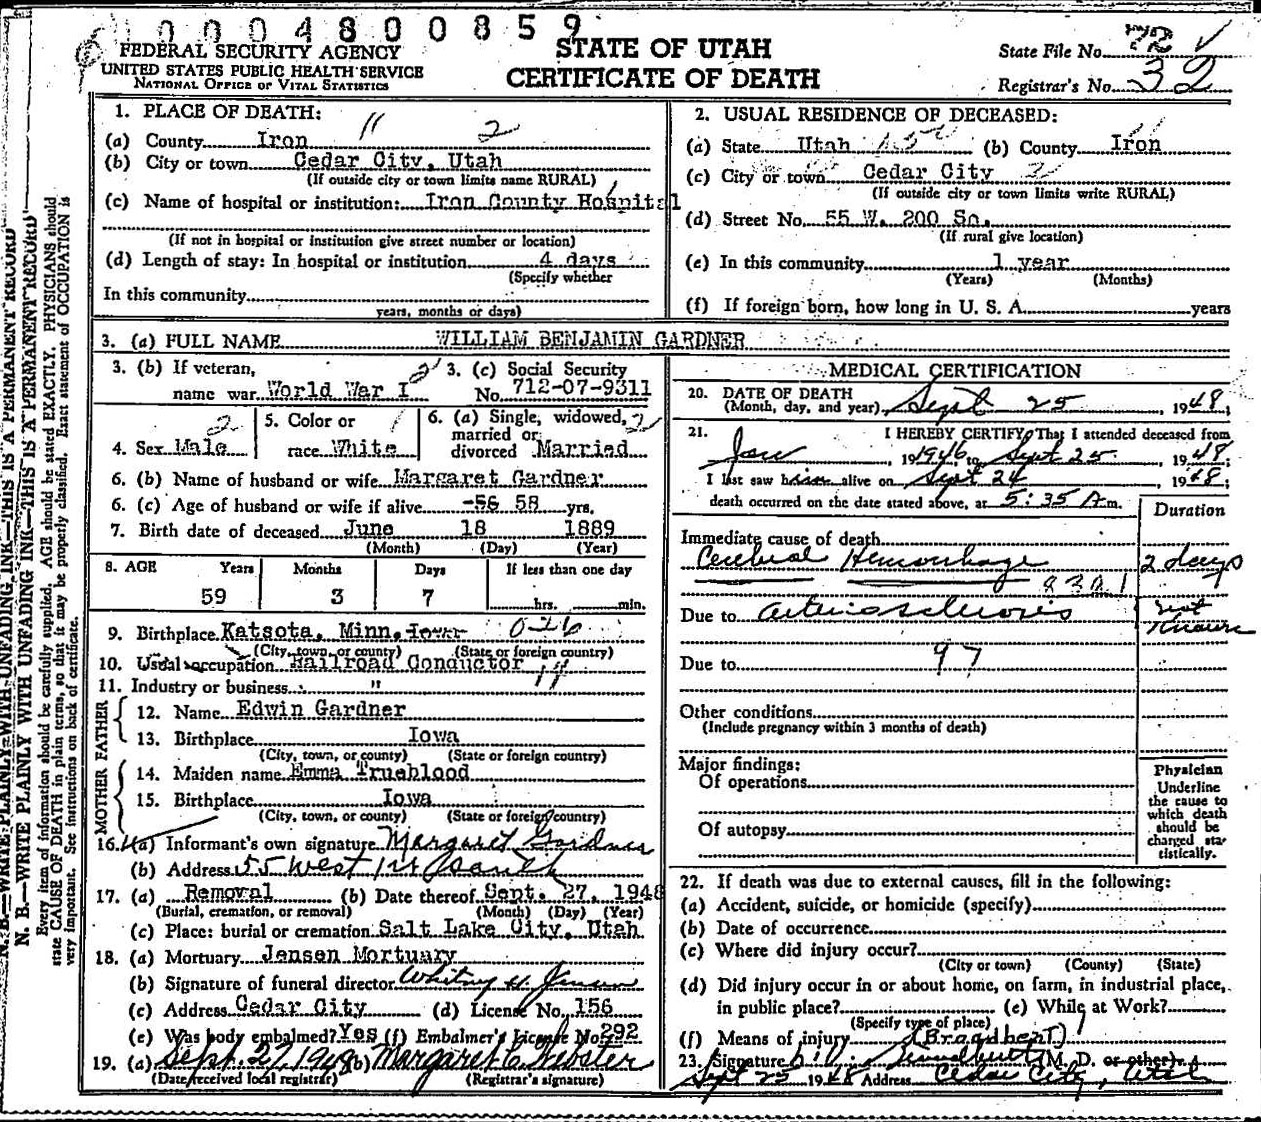 0 0 0 4 8 0 0 8 5 9
FEDERAL SECURITY AGENCY
UNITED STATES PUBLIC HEALTH SERVICE
NATIONAL OFFICE OF VITAL STATISTICS
STATE OF UTAH
CERTIFICATE OF DEATH
State File No. 72 ✓
Registrar's No. 32
N. B.—WRITE PLAINLY WITH UNFADING INK—THIS IS A PERMANENT RECORD
N. B.—WRITE PLAINLY WITH UNFADING INK—THIS IS A PERMANENT RECORD
Every item of information should be carefully supplied. AGE should be stated EXACTLY. PHYSICIANS should
state CAUSE OF DEATH in plain terms, so that it may be properly classified. Exact statement of OCCUPATION is
very important. See instructions on back of certificate.
1. PLACE OF DEATH:
(a) County Iron 11 2
(b) City or town Cedar City, Utah
(If outside city or town limits name RURAL)
(c) Name of hospital or institution: Iron County Hospital
(If not in hospital or institution give street number or location)
(d) Length of stay: In hospital or institution 4 days
(Specify whether
In this community
years, months or days)
2. USUAL RESIDENCE OF DECEASED:
(a) State Utah (b) County Iron
(c) City or town Cedar City
(If outside city or town limits write RURAL)
(d) Street No. 55 W. 200 So.
(If rural give location)
(e) In this community 1 year
(Years) (Months)
(f) If foreign born, how long in U. S. A. years
3. (a) FULL NAME WILLIAM BENJAMIN GARDNER
3. (b) If veteran,
name war World War I 2
3. (c) Social Security
No. 712-07-9311
4. Sex Male 2
5. Color or
race White 1
6. (a) Single, widowed,
married or
divorced Married 2
6. (b) Name of husband or wife Margaret Gardner
6. (c) Age of husband or wife if alive -56 58 yrs.
7. Birth date of deceased June 18 1889
(Month) (Day) (Year)
8. AGE Years Months Days If less than one day
59 3 7 hrs. min.
9. Birthplace Katsota, Minn. Iowa 026
(City, town, or county) (State or foreign country)
10. Usual occupation Railroad Conductor
11. Industry or business "
FATHER
12. Name Edwin Gardner
13. Birthplace Iowa
(City, town, or county) (State or foreign country)
MOTHER
14. Maiden name Emma Trueblood
15. Birthplace Iowa
(City, town, or county) (State or foreign country)
16. (a) Informant's own signature Margaret Gardner
(b) Address 55 West South
17. (a) Removal (b) Date thereof Sept. 27, 1948
(Burial, cremation, or removal) (Month) (Day) (Year)
(c) Place: burial or cremation Salt Lake City, Utah
18. (a) Mortuary Jensen Mortuary
(b) Signature of funeral director
(c) Address Cedar City (d) License No. 156
(e) Was body embalmed? Yes (f) Embalmer's License No. 292
19. (a) Sept. 27, 1948 (b) Margaret C. Webster
(Date received local registrar) (Registrar's signature)
MEDICAL CERTIFICATION
20. DATE OF DEATH
(Month, day, and year) Sept 25, 1948;
21. I HEREBY CERTIFY, That I attended deceased from
Jan, 1946, to Sept 25, 1948
I last saw him alive on Sept 24 1948;
death occurred on the date stated above, at 5:35 A m.
Duration
Immediate cause of death
Cerebral Hemorrhage 2 days
Due to arteriosclerosis not
known
Due to 97
Other conditions
(Include pregnancy within 3 months of death)
Major findings:
Of operations
Of autopsy
Physician
Underline
the cause to
which death
should be
charged sta-
tistically.
22. If death was due to external causes, fill in the following:
(a) Accident, suicide, or homicide (specify)
(b) Date of occurrence
(c) Where did injury occur?
(City or town) (County) (State)
(d) Did injury occur in or about home, on farm, in industrial place,
in public place? (e) While at Work?
(Specify type of place)
(f) Means of injury (Broadbent)
23. Signature (M. D. or other)
Sept 25 1948 Address Cedar City, Utah